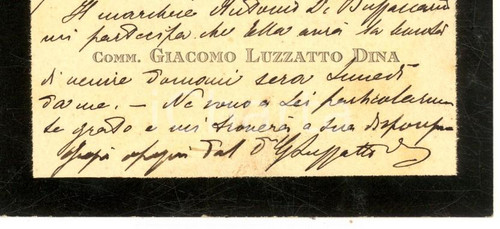 Il marchese Antonio De Buzzaccarini
mi partecipa che Ella avrà la bontà
COMM. GIACOMO LUZZATTO DINA
di venire domani sera Lunedì
da me. — Ne sono a Lei particolarmen
te grato e mi troverà a sua disposi
dal G Luzzatto D